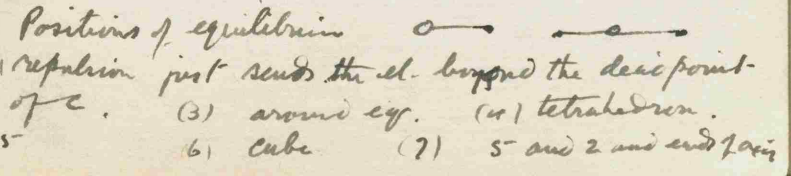 Positions of equilibrium
repulsion just sends the el. beyond the dead point
of C. (3) around eq. (4) tetrahedron.
5 6) cube (7) 5 and 2 and ends of axis